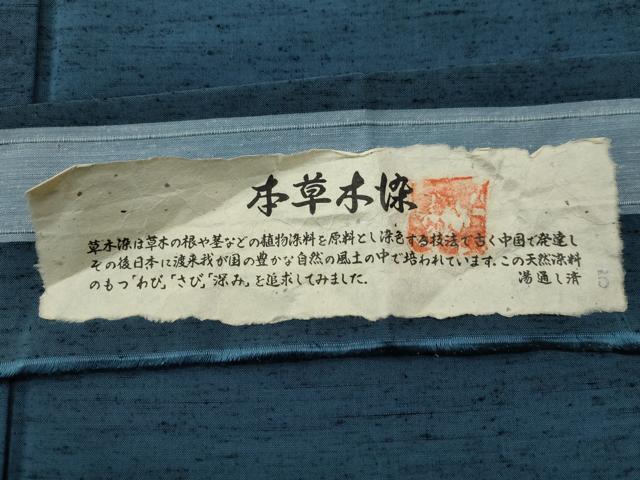 本草木染
草木染は草木の根や茎などの植物染料を原料とし染色する技法で古く中国で発達し
その後日本に渡来我が国の豊かな自然の風土の中で培われています.この天然染料
のもつ「わび」「さび」「深み」を追求してみました.
湯通し済